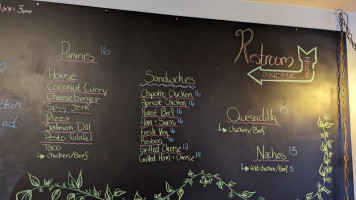 3pm
Paninis 16
House
Coconut Curry
Cheeseburger
Spicy Jerk
Pizza
Salmon Dill
Pesto Falafel
Taco
↳ Chicken/Beef
Sandwiches
Chipotle Chicken 16
Apricot Chicken
Roast Beef
Ham + Swiss
Fresh Veg
Reuben
Grilled Cheese
Grilled Ham + Cheese
Restroom
GNOME
Quesadilla
↳ Chicken/Beef
Nachos
↳ Add Chicken/Beef 5